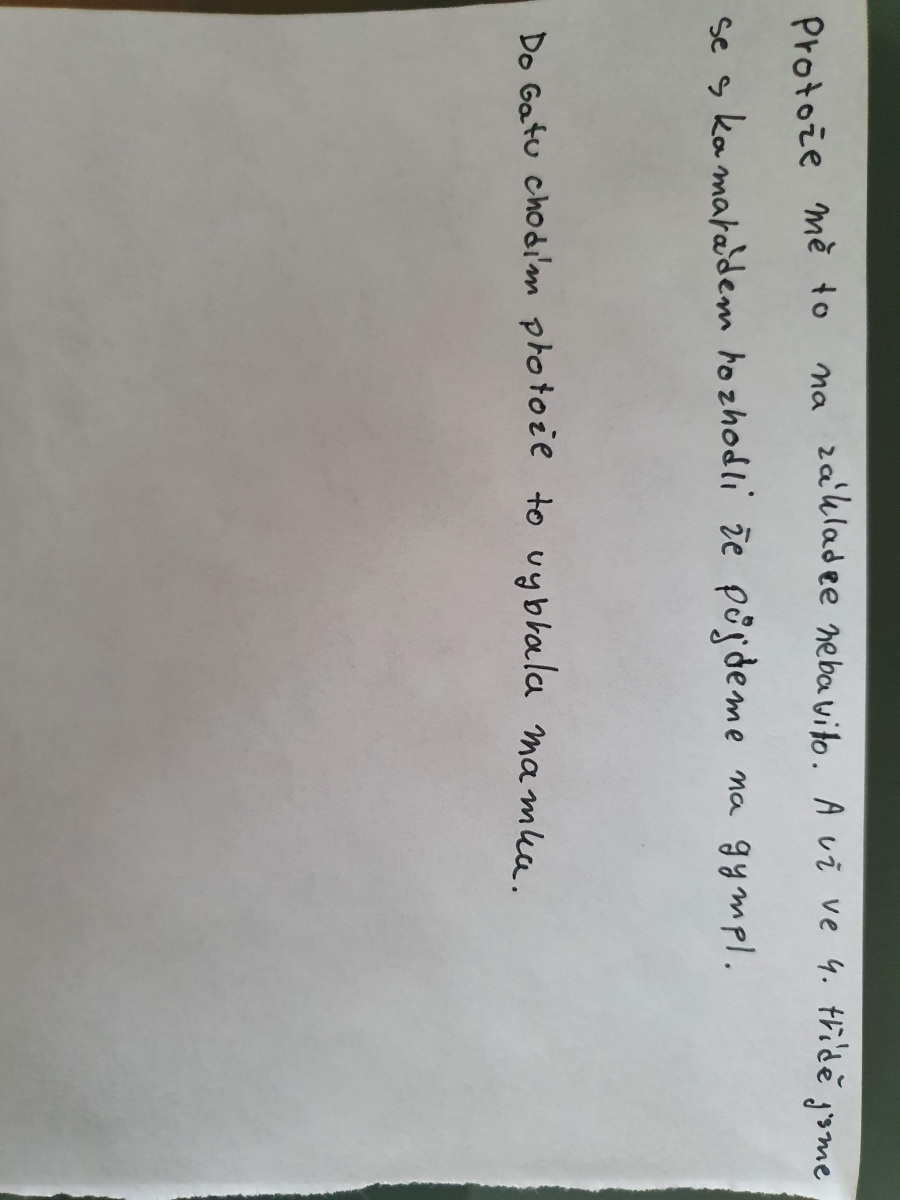 Protože mě to na základee nebavilo. A už ve 4. třídě jsme
se s kamarádem rozhodli že půjdeme na gympl.
Do Gatu chodím protože to vybrala mamka.